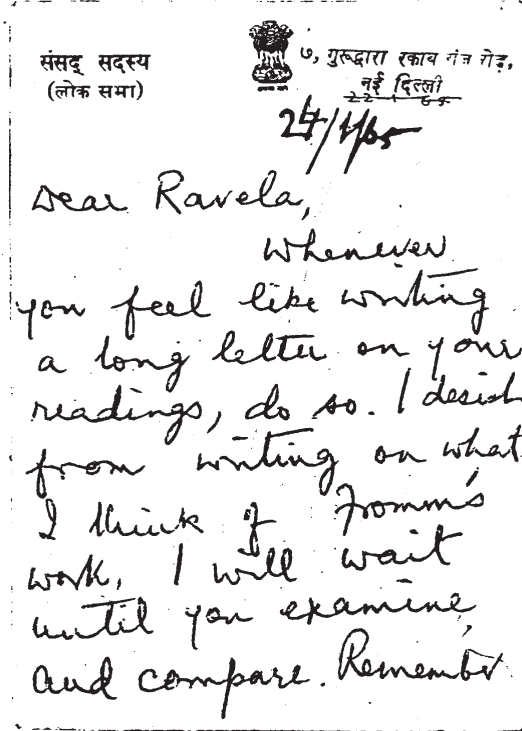 संसद् सदस्य
(लोक सभा)
७, गुरूद्वारा रकाब गंज रोड़,
नई दिल्ली
24/1/65
Dear Ravela,
Whenever
you feel like writing
a long letter on your
readings, do so. I desist
from writing on what
I think of Fromm's
work. I will wait
until you examine
and compare. Remember